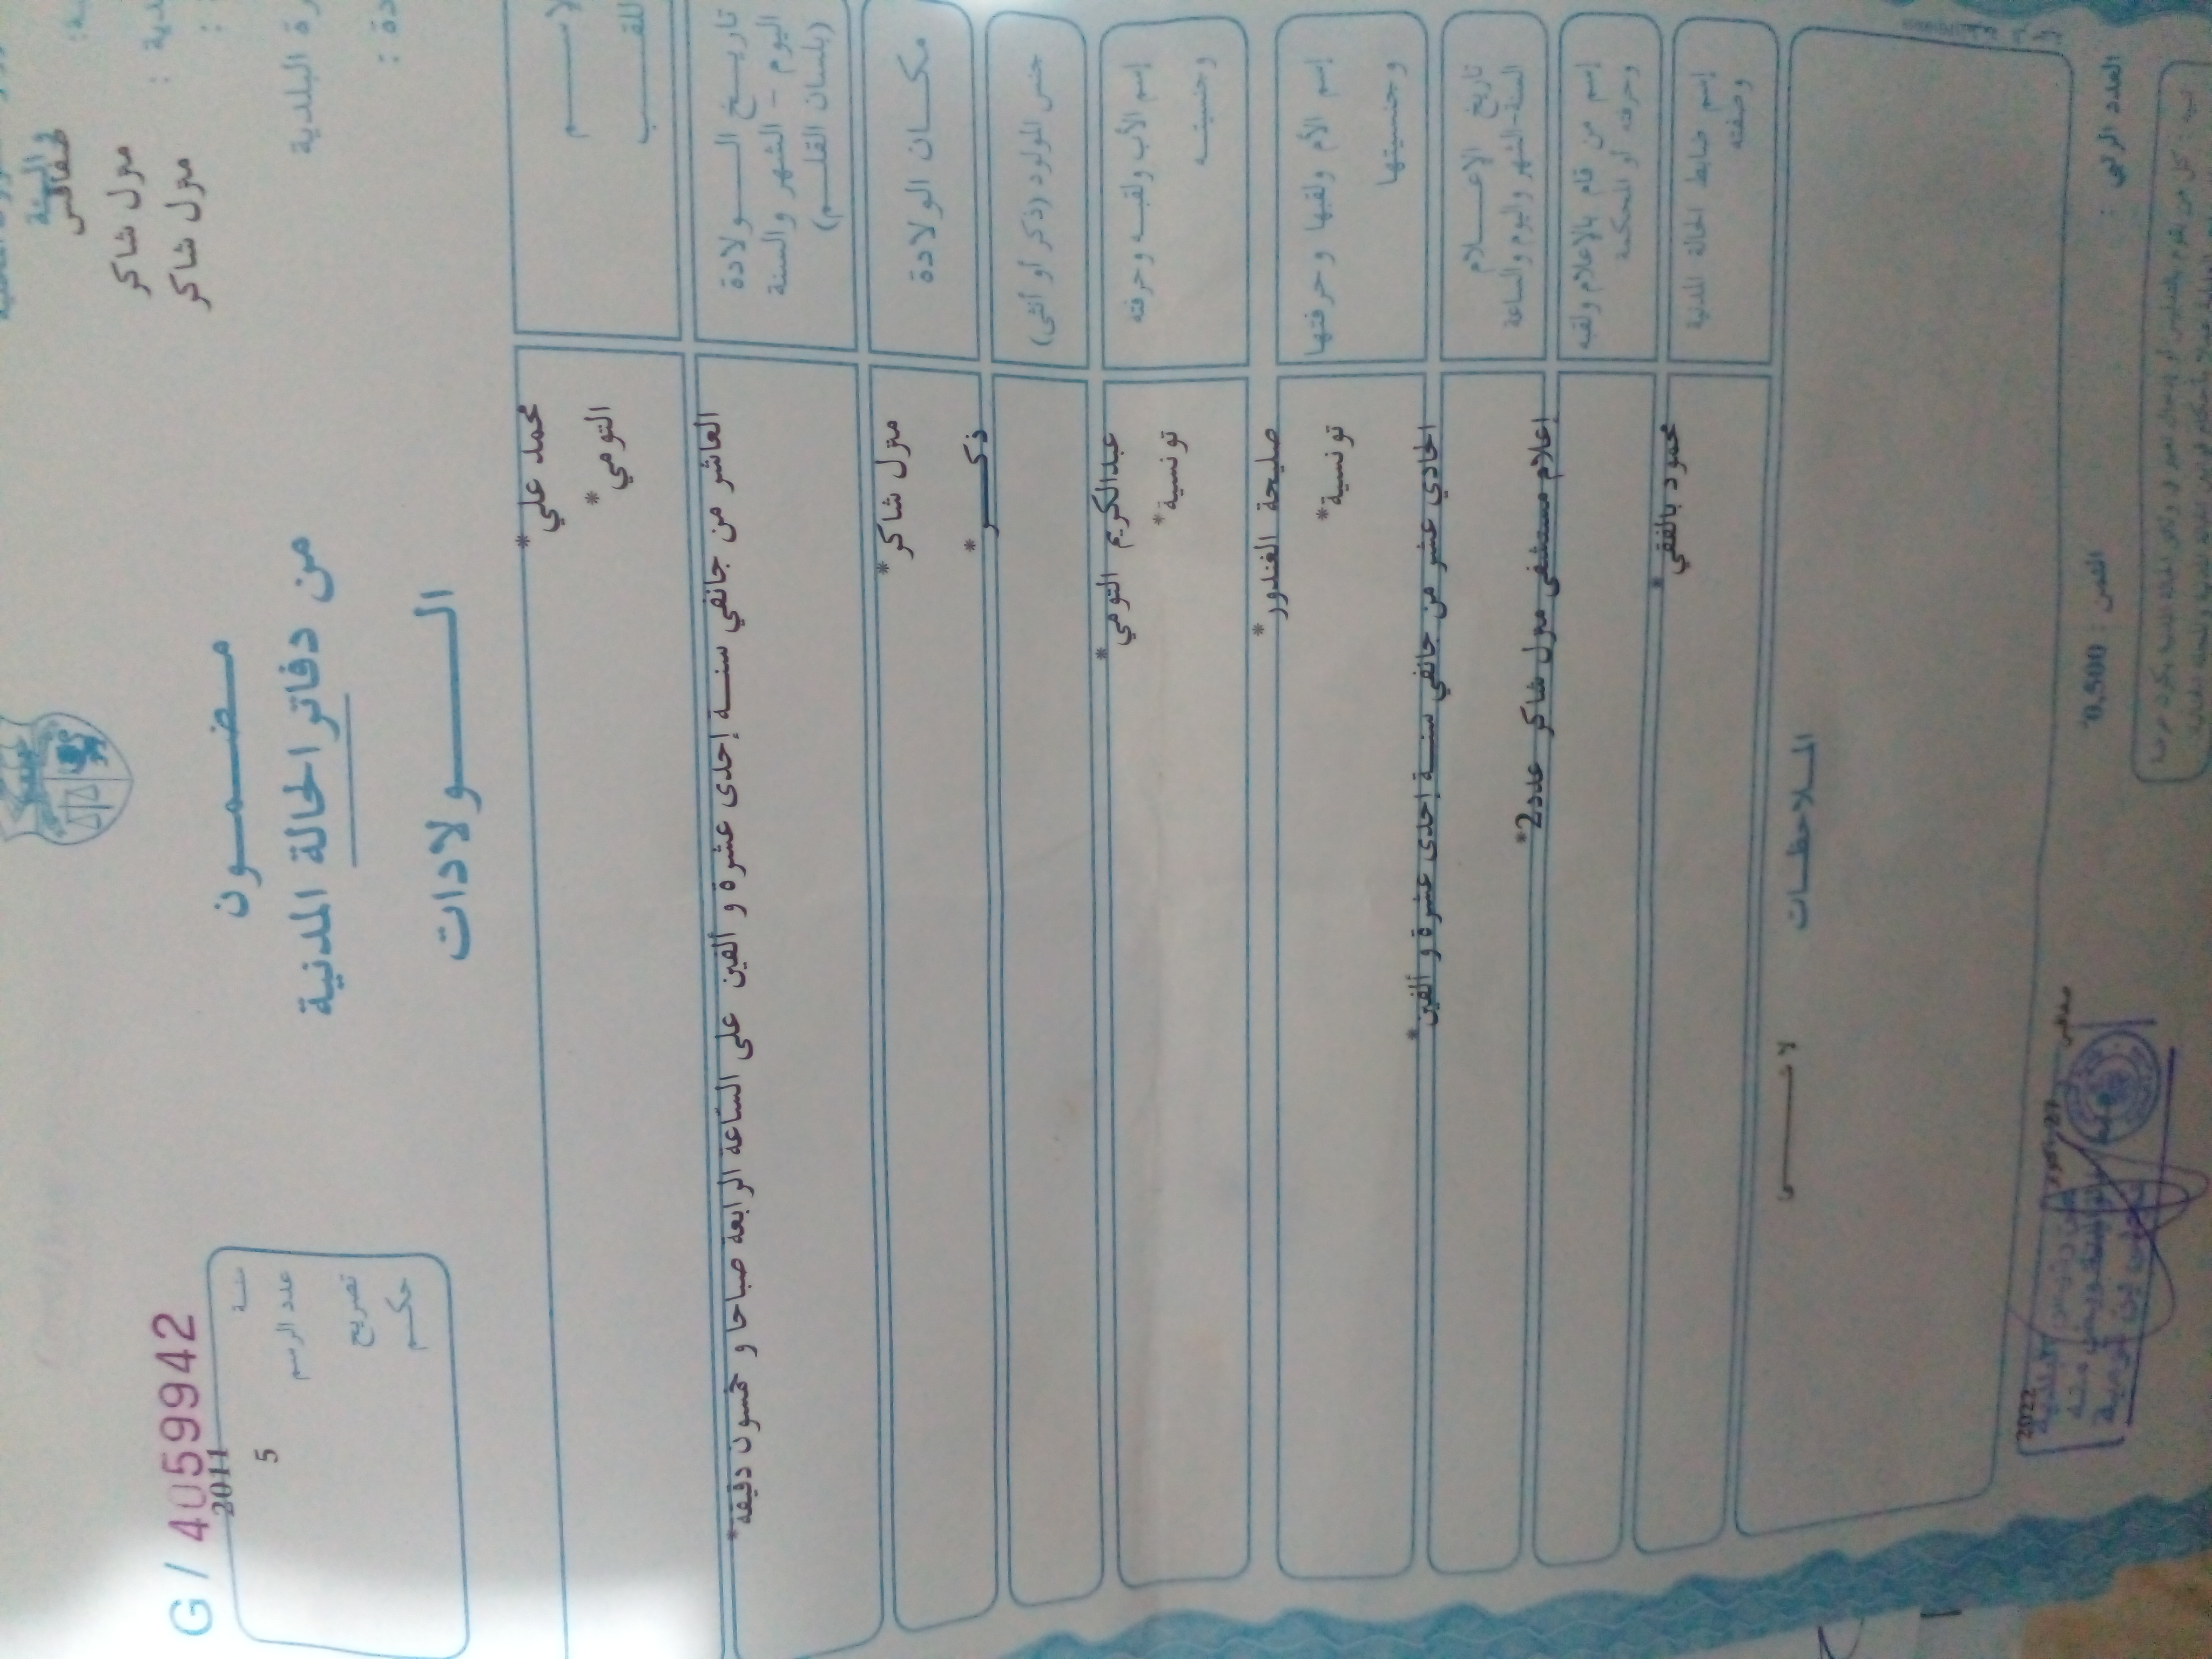 والبيئة
صفاقس
منزل شاكر
منزل شاكر
مضمون
من دفاتر الحالة المدنية
الولادات
G / 4059942
سنة 2011
عدد الرسم 5
تصريح
حكم
محمد علي*
اللقب
التومي*
تاريخ الولادة
اليوم - الشهر والسنة
(بلسان القلم)
العاشر من جانفي سنة إحدى عشرة و ألفين على الساعة الرابعة صباحا و خمسون دقيقة*
مكان الولادة
منزل شاكر*
جنس المولود (ذكر أو أنثى)
ذكر*
إسم الأب ولقبه وحرفته
وجنسيته
عبدالكريم التومي*
تونسية*
إسم الأم ولقبها وحرفتها
وجنسيتها
صليحة الغندور*
تونسية*
تاريخ الإعلام
السنة-الشهر واليوم والساعة
الحادي عشر من جانفي سنة إحدى عشرة و ألفين*
إسم من قام بالإعلام ولقبه
وحرفته أو المحكمة
إعلام مستشفى منزل شاكر عدد2*
إسم ضابط الحالة المدنية
وصفته
محمود بالفقي*
الملاحظات
العدد الرتبي :
الثمن : 0,500
صفاقس
2022